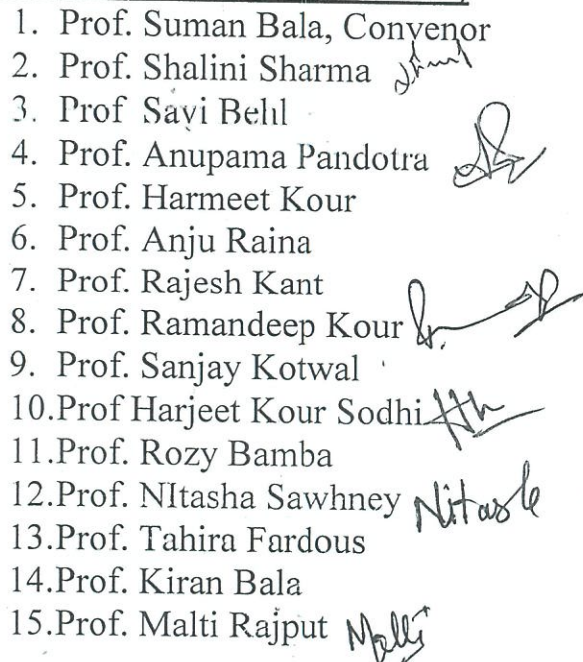 1. Prof. Suman Bala, Convenor
2. Prof. Shalini Sharma
3. Prof Savi Behl
4. Prof. Anupama Pandotra
5. Prof. Harmeet Kour
6. Prof. Anju Raina
7. Prof. Rajesh Kant
8. Prof. Ramandeep Kour
9. Prof. Sanjay Kotwal
10.Prof Harjeet Kour Sodhi
11.Prof. Rozy Bamba
12.Prof. NItasha Sawhney Nitash
13.Prof. Tahira Fardous
14.Prof. Kiran Bala
15.Prof. Malti Rajput Malti